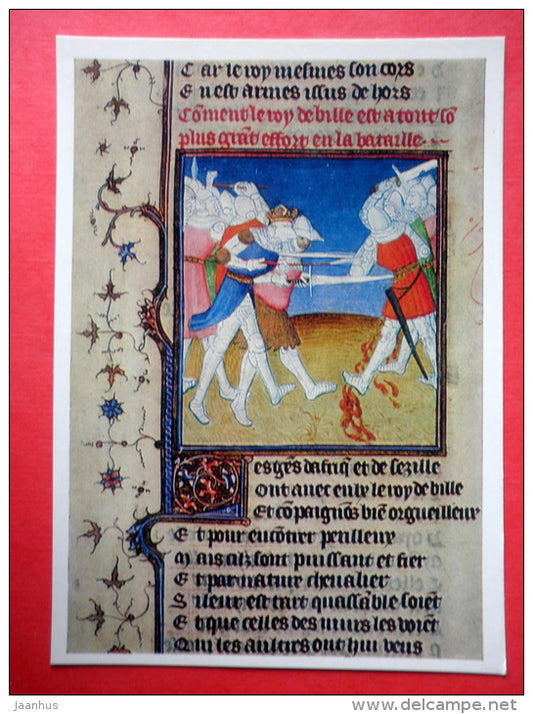 Car le roy mesmes son cors
En est armes issus de hors
Cõment le roy de bille est a tout sõ
plus grãt effort en la bataille
es gẽs dafriq et de sezille
Ont auec eulx le roy de bille
Et cõpaignõs biẽ orgueilleux
Et pour encõtrer perilleux
Mais cilz sont puissant et fier
Et par nature cheualier
Si leur est tart quassãble soiẽt
Et que celles des murs les voiẽt
Qui les aultres ont hui veus
jaanhus
www.delcampe.net